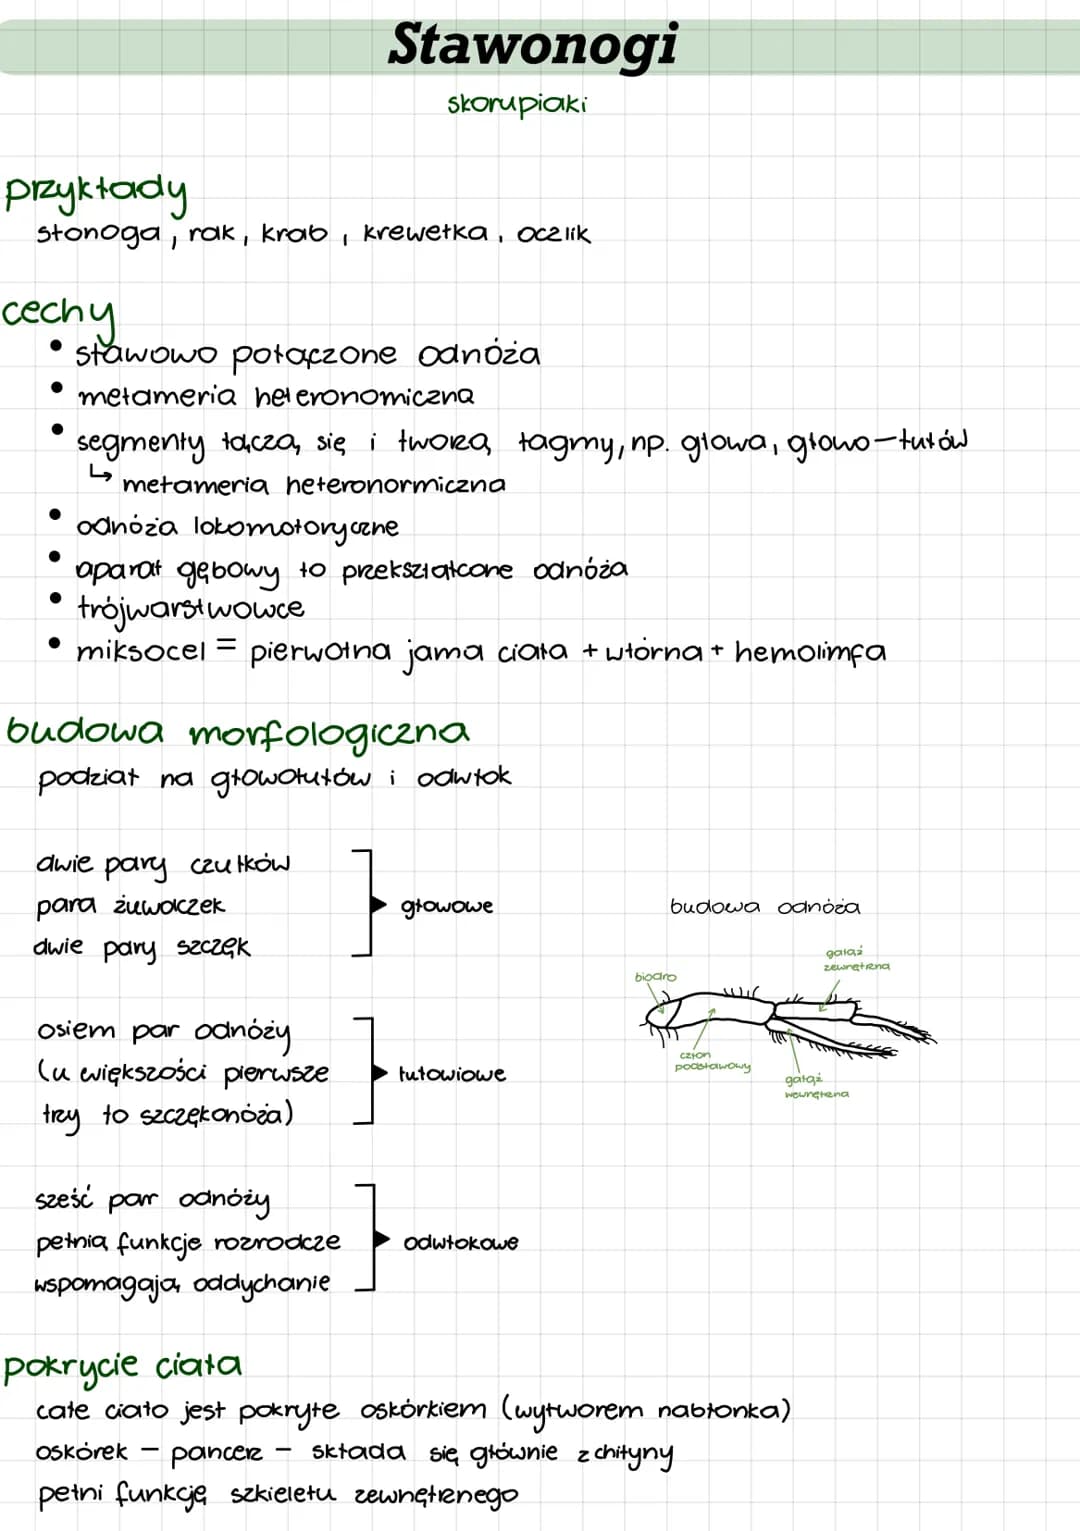 Stawonogi
skorupiaki
przykłady
stonoga, rak, krab, krewetka, oczlik
cechy
• stawowo połączone odnóża
• metameria heteronomiczna
• segmenty łączą się i tworzą tagmy, np. głowa, głowo-tułów
↳ metameria heteronormiczna
• odnóża lokomotoryczne
• aparat gębowy to przekształcone odnóża
• trójwarstwowce
• miksocel = pierwotna jama ciała + wtórna + hemolimfa
budowa morfologiczna
podział na głowotułów i odwłok
dwie pary czułków
para żuwaczek
dwie pary szczęk
głowowe
budowa odnóża
gałąź
zewnętrzna
biodro
człon
podstawowy
gałąź
wewnętrzna
osiem par odnóży
(u większości pierwsze
trzy to szczękonóża)
tułowiowe
sześć par odnóży
pełnią funkcje rozrodcze
wspomagają oddychanie
odwłokowe
pokrycie ciała
całe ciało jest pokryte oskórkiem (wytworem nabłonka)
oskórek – pancerz – składa się głównie z chityny
pełni funkcję szkieletu zewnętrznego